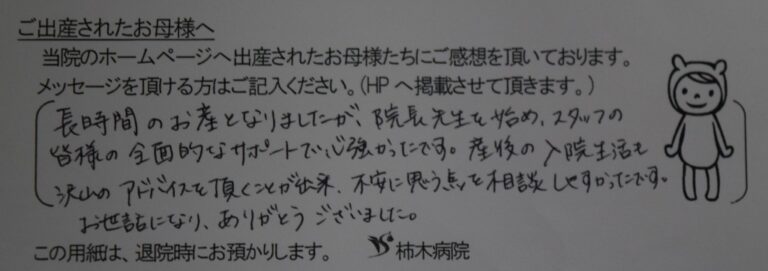 ご出産されたお母様へ
当院のホームページへ出産されたお母様たちにご感想を頂いております。
メッセージを頂ける方はご記入ください。(HPへ掲載させて頂きます。)
長時間のお産となりましたが、院長先生を始め、スタッフの
皆様の全面的なサポートで心強かったです。産後の入院生活も
沢山のアドバイスを頂くことが出来、不安に思う点を相談しやすかったです。
お世話になり、ありがとうございました。
この用紙は、退院時にお預かりします。 柿木病院